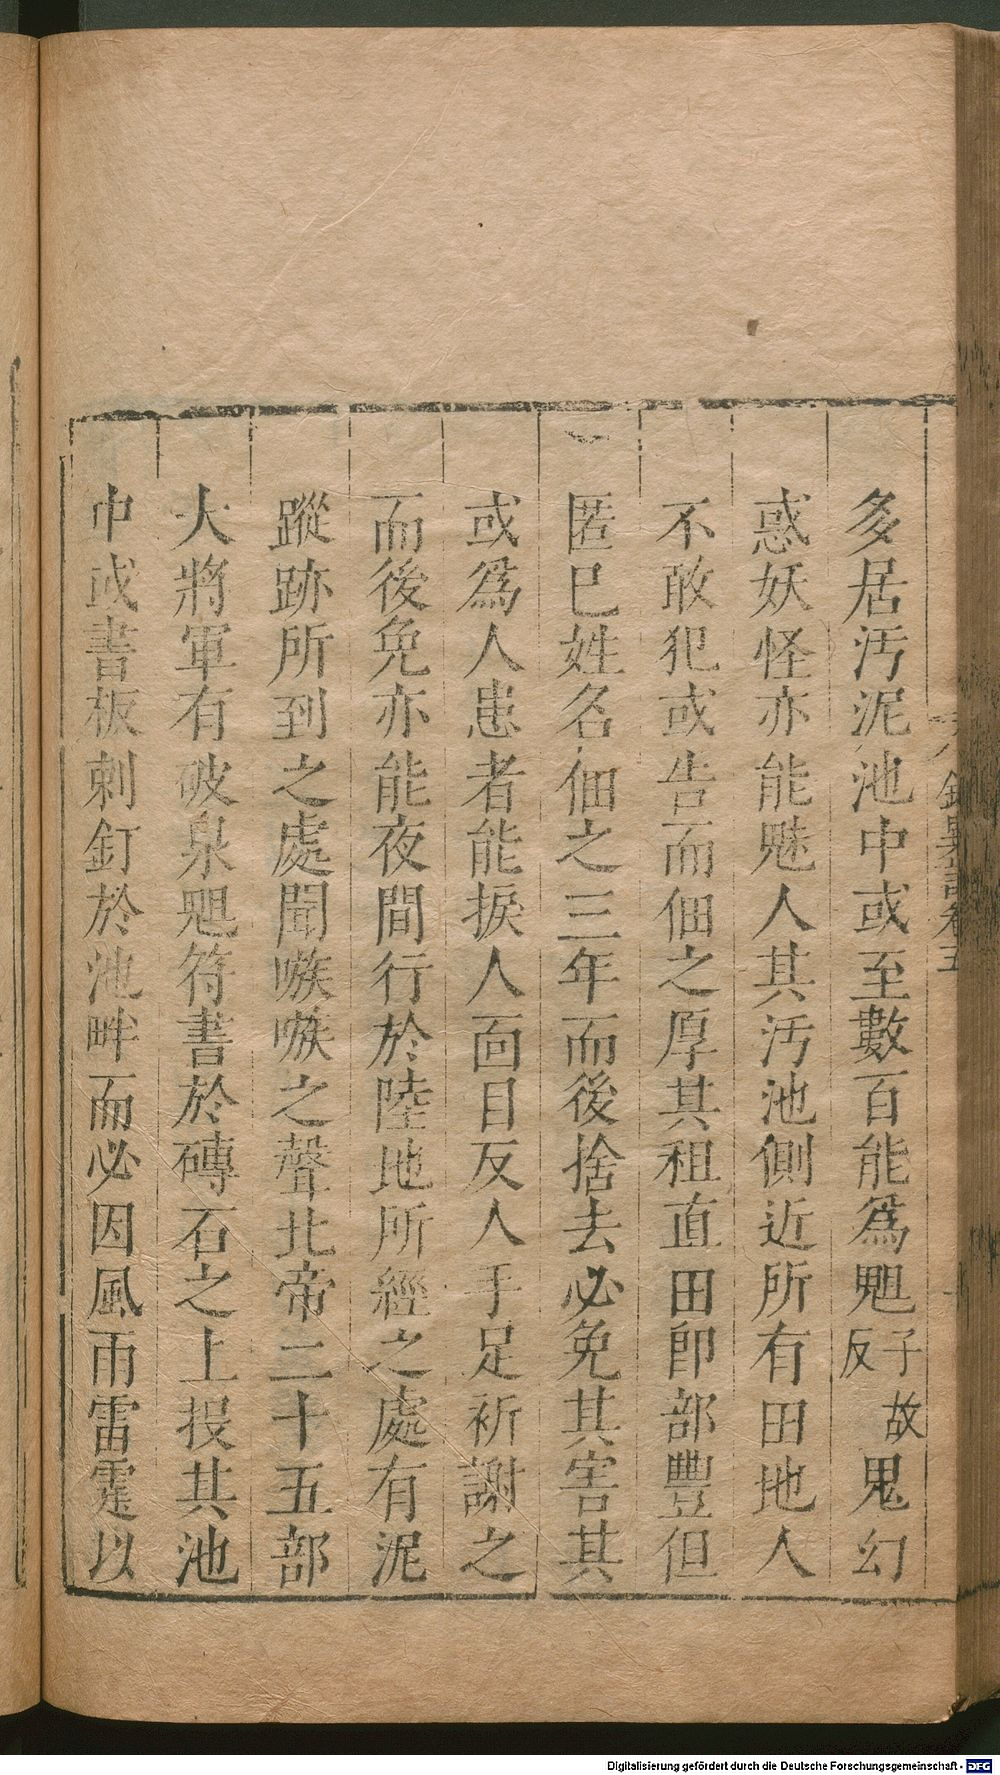 多居汚泥池中或至數百能爲魑子故反鬼幻
惑妖怪亦能魅人其汚池側近所有田地人
不敢犯或告而佃之厚其租直田即部豐但
匿已姓名佃之三年而後捨去必免其害其
或爲人患者能捩人面目反人手足祈謝之
而後免亦能夜間行於陸地所經之處有泥
蹤跡所到之處聞嗾嗾之聲北帝二十五部
大將軍有破泉魑符書於磚石之上投其池
中或書板刺釘於池畔而必因風雨雷霆以
錄異記卷五
Digitalisierung gefördert durch die Deutsche Forschungsgemeinschaft - DFG